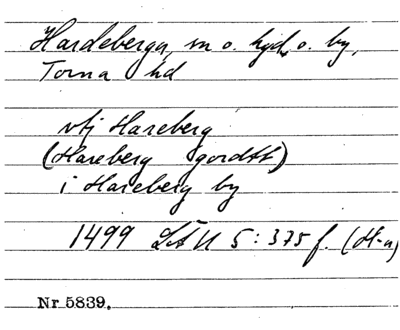 Hardeberga, sn o. kyd, o. by,
Torna hd
vtj Hareberg
(Hareberg gordtt)
i Hareberg by
1499 LÄU 5:375 f. (H-a)
Nr 5839.